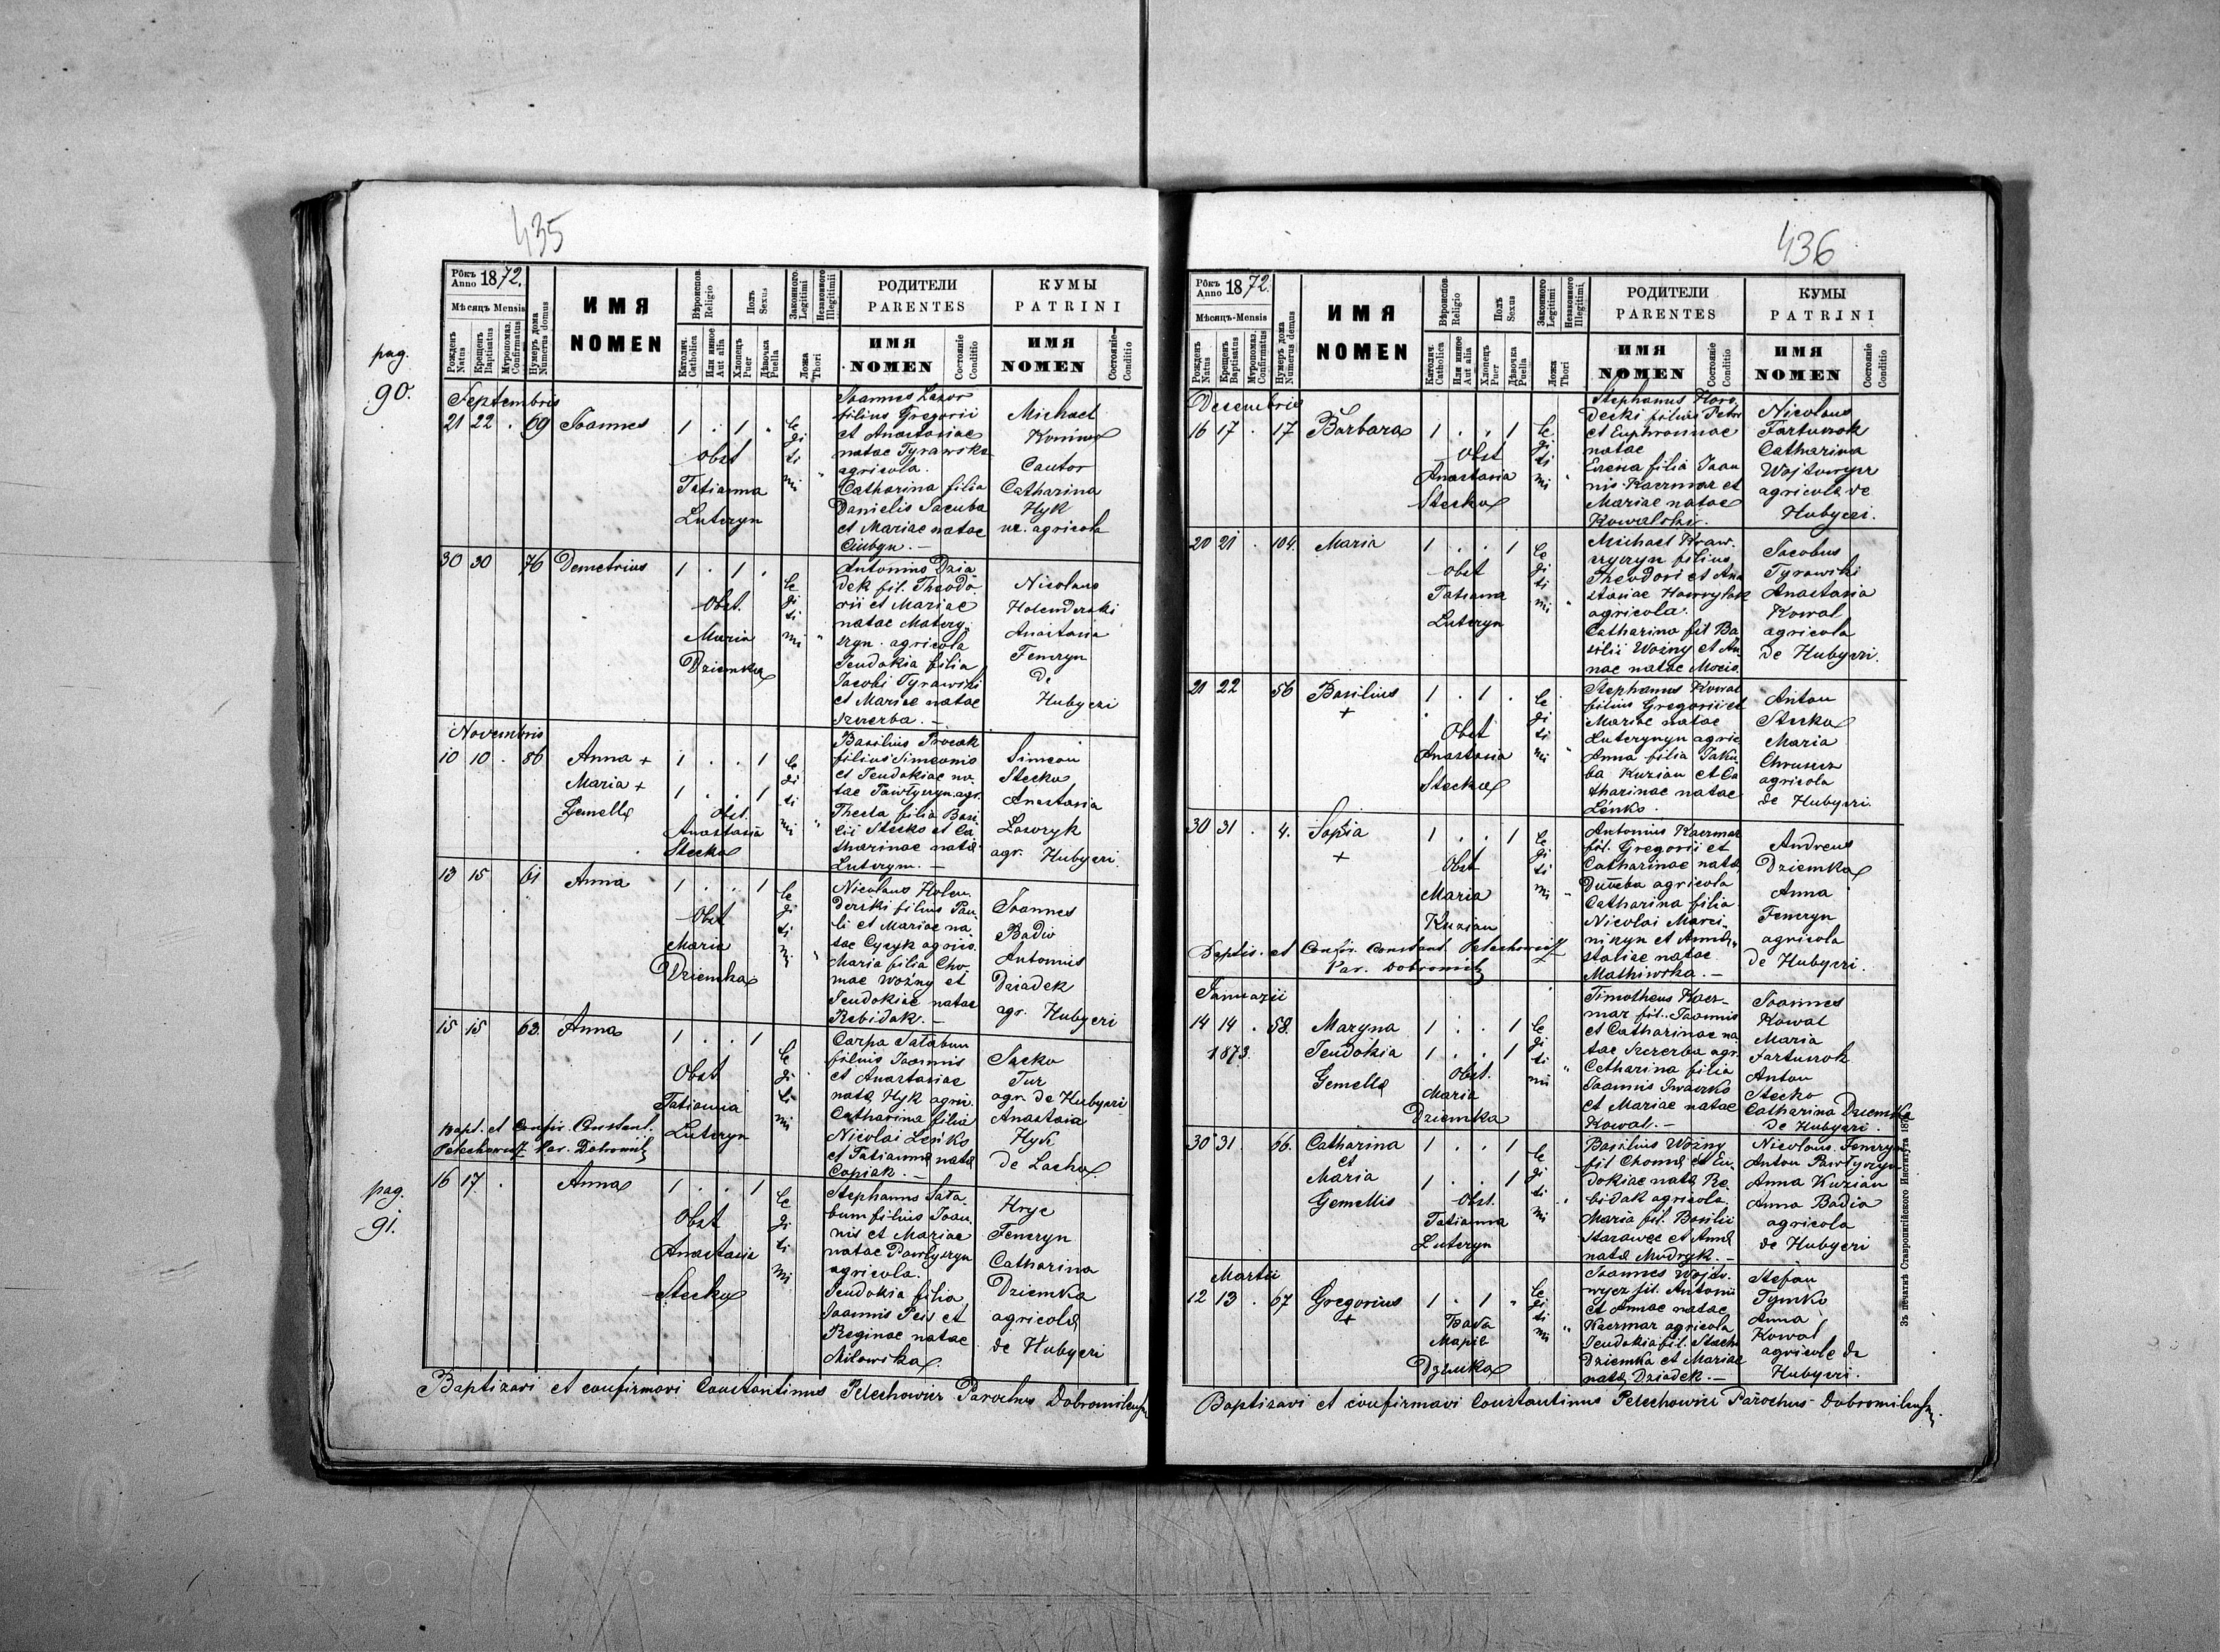 435
Рокъ Anno 1872.
Мѣсяць Mensis
Рожденъ Natus
Крещенъ Baptisatus
Муропомаз. Confirmatus
Нумеръ дома Numerus domus
ИМЯ
NOMEN
Вѣроиспов. Religio
Католич. Catholica
Или иное Aut alia
Полъ Sexus
Хлопецъ Puer
Дѣвочка Puella
Законного Legitimi
Незаконного Illegitimii
Ложа Thori
РОДИТЕЛИ
PARENTES
ИМЯ
NOMEN
Состояніе Conditio
КУМЫ
PATRINI
ИМЯ
NOMEN
Состояніе Conditio
pag.
90.
Septembris
21 22 . 69 Joannes 1 . 1 .
Obst
Tatianna
Luteryn
legitimi
Joannes Lazor
filius Gregorii
et Anastasiae
natae Tyrawska
agricola.
Catharina filia
Danielis Jacuba
et Mariae natae
Michael
Cantor
Catharina
Hyk
agricola
30 30 76 Demetrius 1 . 1 .
Obst.
Maria
Dziemka
legitimi
Antonius Dzia
dek fil. Theodo
rii et Mariae
natae Matery
czyn. agricola
Jeudokia filia
Jacobi Tyrawski
et Mariae natae
Szczerba. —
Nicolaus
Holenderski
Anastasia
Fenczyn
de
Hubyczi
Novembris
10 10 . 86 Anna + 1 . . 1
Maria + 1 . . 1
Gemellae
Obst.
Anastasia
Stecka
legitimi
Basilius Procak
filius Simeonis
et Jeudokiae na
tae Pawłyczyn agr.
Thecla filia Basi
lii Stecko et Ca
tharinae natae
Luteryn. —
Simeon
Stecko
Anastasia
Lawryk
agr. Hubyczi.
13 15 61 Anna 1 . . 1
Obst
Maria
Dziemka
legitimi
Nicolaus Holen
derski filius Pau
li et Mariae na
tae Cyzyk agrico.
Maria filia Cho
mae Woźny et
Jeudokiae natae
Rebidak. —
Joannes
Badio
Antonius
Dziadek
agr. Hubyczi
15 15 63. Anna 1 . . 1
Obst
Tatianna
Luteryn
legitimi
Carpa Satabun
filius Joannis
et Anastasiae
natae Hyk agri.
Catharina filia
Nicolai Leśko
et Tatiannae natae
Copiak. —
Sacko
Tur
agr. de Hubyczi
Anastasia
Hyk
de Lacko
Bapt. et Confir. Constant.
Pelechowicz Par. Dobromil
pag.
91.
16 17. . Anna 1 . . 1
Obst
Anastasia
Stecka
legitimi
Stephanus Sata
bum filius Joan
nis et Mariae
natae Pawłyczyn
agricola.
Jeudokia filia
Joannis Pes et
Reginae natae
Milowska.
Hryc
Fenczyn
Catharina
Dziemka
agricolae
de Hubyczi
Baptizavi et confirmavi Constantinus Pelechowicz Parochus Dobromilensis
436
Рокъ Anno 1872.
Мѣсяць-Mensis
Рожденъ Natus
Крещенъ Baptisatus
Муропомаз. Confirmatus
Нумеръ дома Numerus domus
ИМЯ
NOMEN
Вѣроиспов. Religio
Католич. Catholica
Или иное Aut alia
Полъ Sexus
Хлопецъ Puer
Дѣвочка Puella
Законного Legitimi
Незаконного Illegitimi,
Ложа Thori
РОДИТЕЛИ
PARENTES
ИМЯ
NOMEN
Состояніе Conditio
КУМЫ
PATRINI
ИМЯ
NOMEN
Состояніе Conditio
Decembris
16 17 . 17 Barbara 1 . . 1
Obst
Anastasia
Stecka
legitimi
Stephanus Horo
decki filius Petri
et Euphrosinae
natae
filia Joan
nis Kaczmar et
Mariae natae
Kowalska.
Nicolaus
Fartuszok
Catharina
Wojtowycz
agricola de
Hubyczi.
20 21 . 104. Maria 1 . . 1
Obst
Tatiana
Luteryn
legitimi
Michael Kraw
czyczyn filius
Theodori et Ana
stasiae Hawrylak
agricola.
Catharina fil Ba
silii Woźny et An
nae natae Mocio.
Jacobus
Tyrawski
Anastasia
Kowal
agricola
de Hubyczi.
21 22 56 Basilius 1 . 1 .
+
Obst
Anastasia
Stecka
legitimi
Stephanus Kowal
filius Gregorii et
Mariae natae
Luterynyn agric.
Anna filia Jaku
ba Kuzian et Ca
tharinae natae
Leńko.
Anton
Stecko
Maria
agricola
de Hubyczi
30 31 . 4. Sopia 1 . . 1
+
Obst
Maria
Kuzian
legitimi
Antonius Kaczmar
fil. Gregorii et
Catharinae natae
agricola
Catharina filia
Nicolai Marci
niszyn et
natae
Mathiwska. —
Andreus
Dziemka
Anna
Fenczyn
agricola
de Hubyczi.
Baptis. et Confir. Constant. Pelechowicz
Par. Dobromil
Januarii
14 14 . 58. Maryna 1 . . 1
1873. Jeudokia 1 . . 1
Gemellae
Obst.
Maria
Dziemka
legitimi
Timotheus Kacz-
mar fil. Joannis
et Catharinae na
tae Szczerba agr.
Catharina filia
Joannis Iwaczko
et Mariae natae
Kowal. —
Joannes
Kowal
Maria
Fartuszok
Anton
Stecko
Catharina Dziemka
de Hubyczi.
30 31 . 66. Catharina 1 . . 1
et
Maria 1 . . 1
Gemellis
Obst.
Tatianna
Luteryn
legitimi
Basilius Woźny
fil Chomae et Eu
dokiae natae Re
bidak agricola.
Maria fil. Basilii
Starawec et Annae
natae Mudryk. —
Nicolaus Fenczyn
Anton Pawłyczyn
Anna Kuzian
Anna Badio
agricola
de Hubyczi
Martii
12 13 . 67 Gregorius 1 . 1 .
+
Баба
Марія
Дзѣмка
legitimi
Joannes Wojto
wycz fil. Antonii
et Annae natae
Kaczmar agricola
Jeudokia fil. Stach
Dziemka et Mariae
natae Dziadek. —
Stefan
Tymko
Anna
Kowal
agricole de
Hubyczi.
Baptizavi et confirmavi Constantinus Pelechowicz Parochus Dobromilensis.
Зъ печатнѣ Ставропигійского Института 187